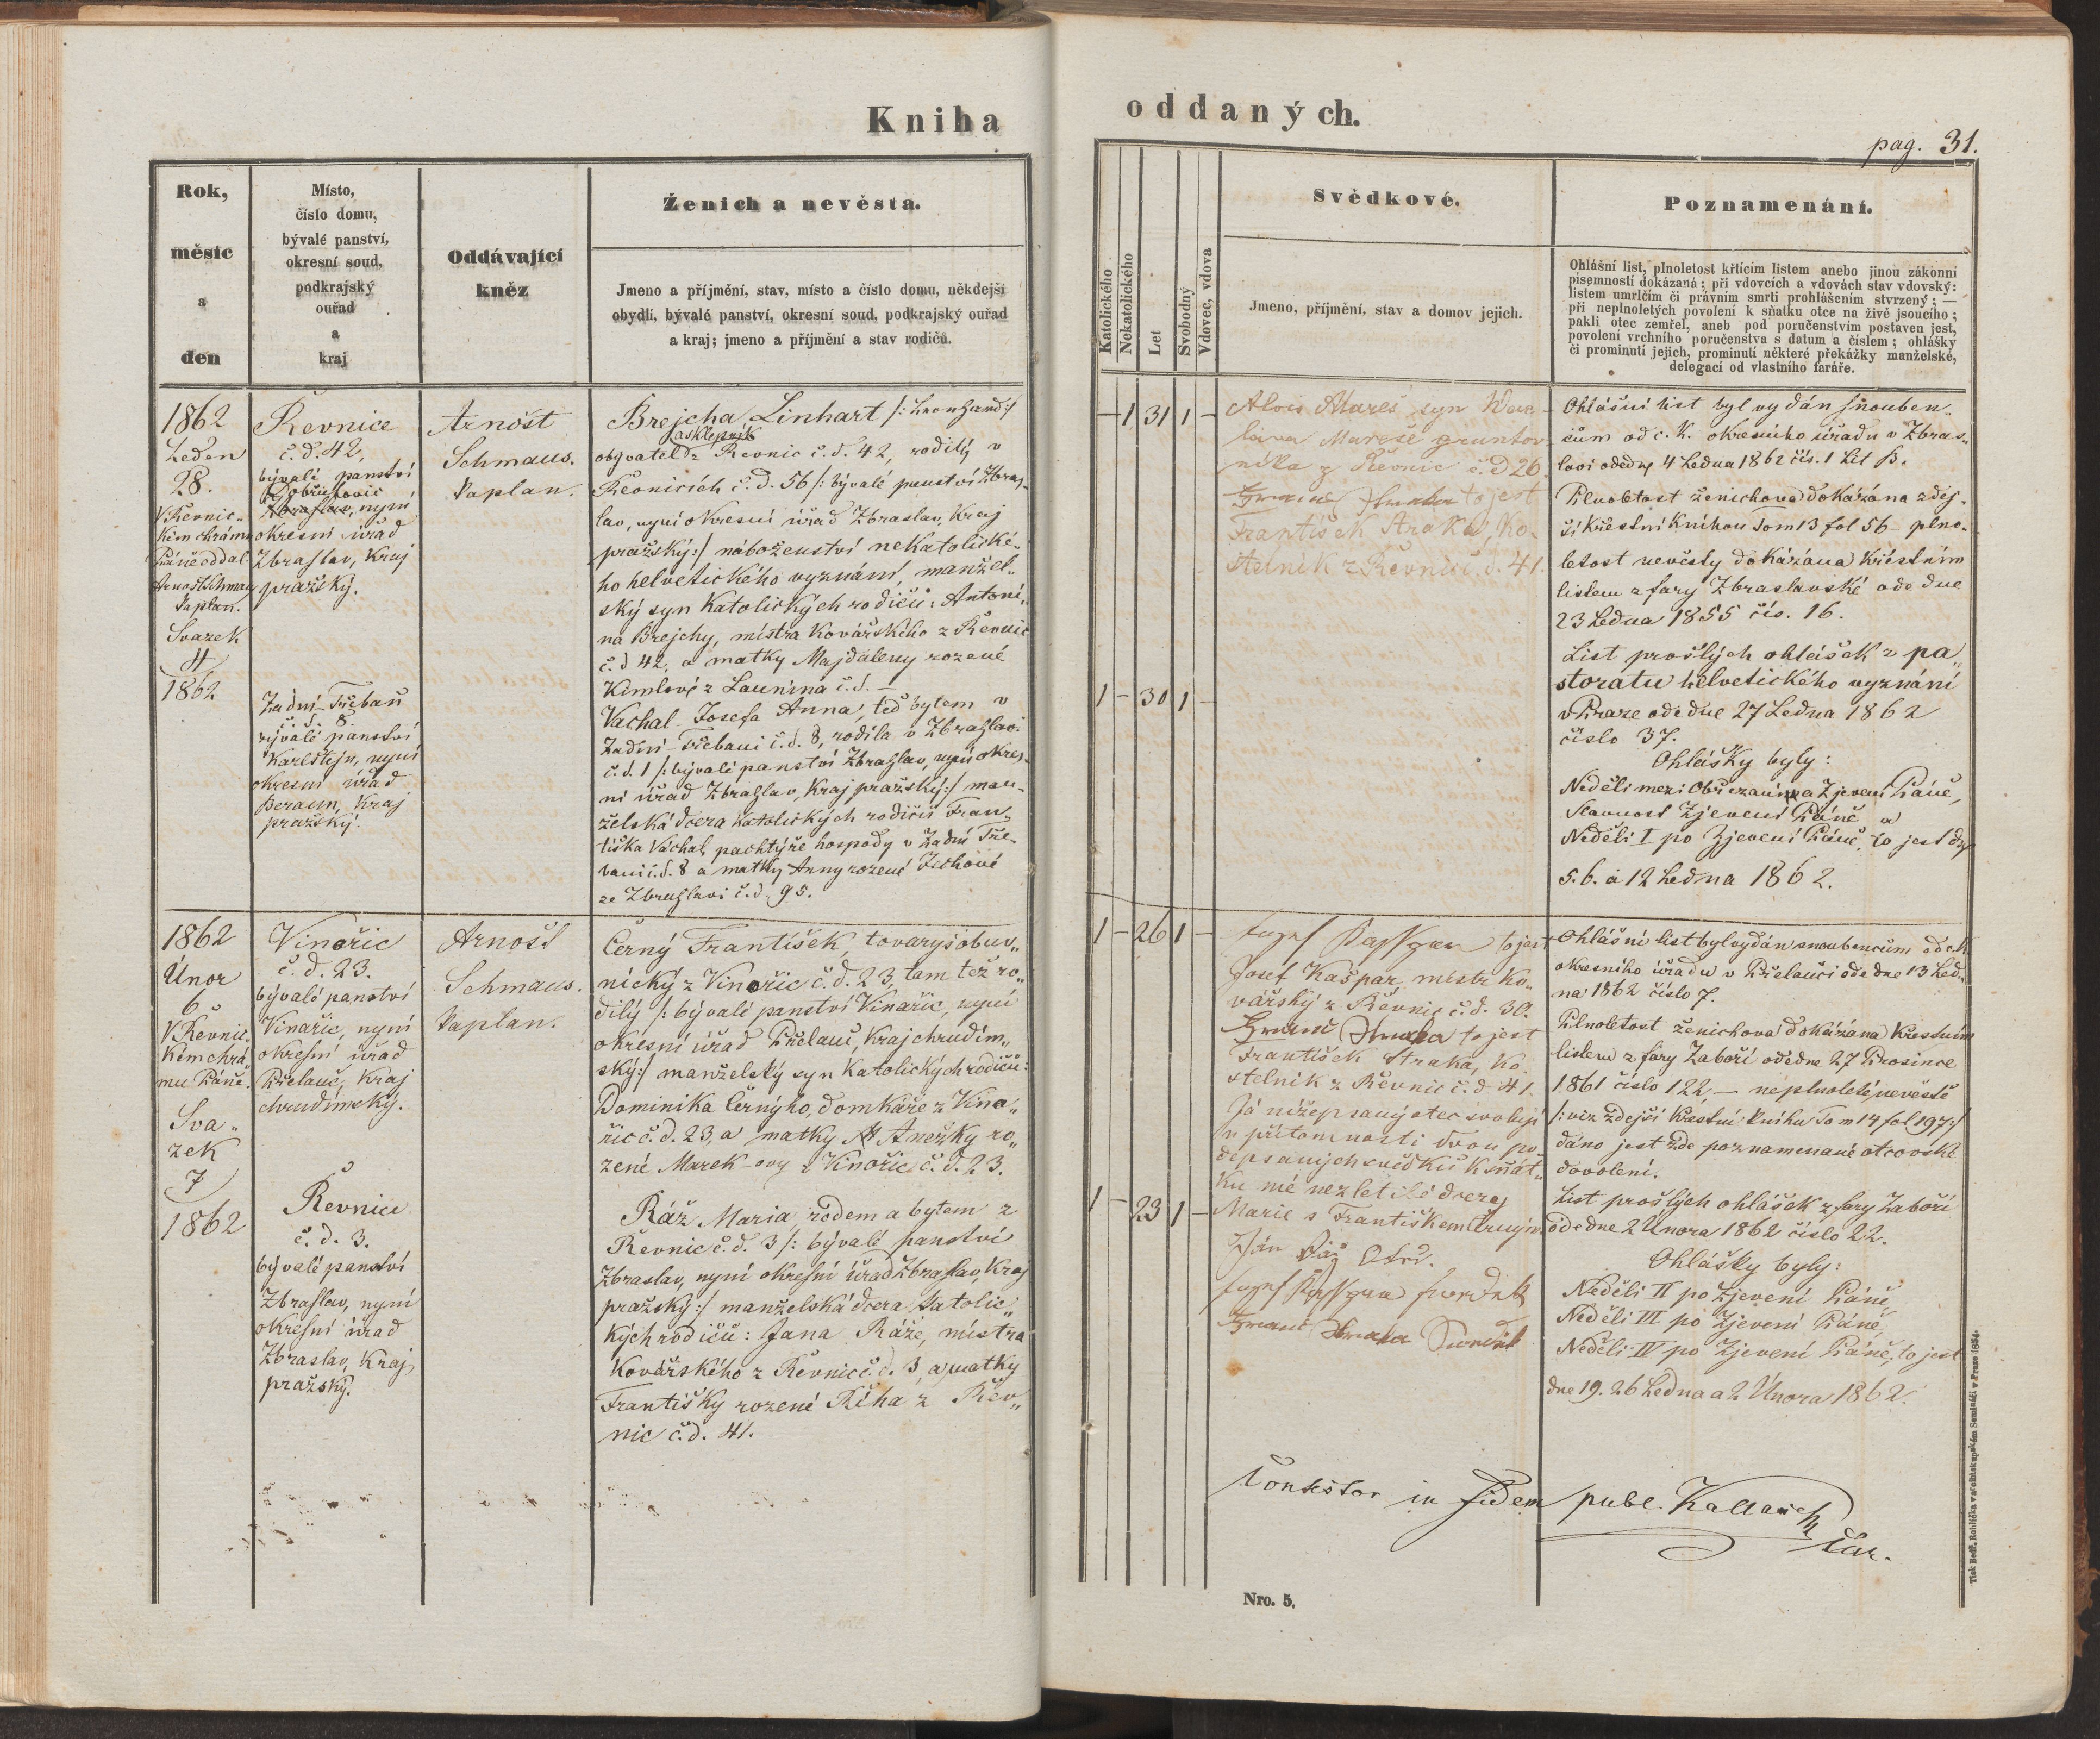 Kniha
Rok,
měsíc
a
den
Místo,
číslo domu,
bývalé panství,
okresní soud,
podkrajský
ouřad
a
kraj
Oddávající
kněz
Ženich a nevěsta.
Jmeno a příjmění, stav, místo a číslo domu, někdejší
obydlí, bývalé panství, okresní soud, podkrajský ouřad
a kraj; jmeno a příjmění a stav rodičů.
1862
Leden
28.
V Řevnic„
kém chrámu
Páně oddal
Arnošt Schmaus
Kaplan.
Svazek
4
1862
Řevnice
č.d. 42,
bývalé panství
Dobřichovic
Zbraslav, nyní
okresní úřad
Zbraslav, kraj
pražský.
Arnošt
Schmaus.
Kaplan.
Brejcha Linhart /:Leonhard:/
obyvatel z Řevnic č.d. 42, rodilý v
Řevnicích č.d. 56 /:bývalé panství Zbras„
lav, nyní okresní úřad Zbraslav, kraj
pražský:/ náboženství nekatolické„
ho helvetického vyznání, manžel„
ský syn katolických rodičů: Antoní„
na Brejchy, mistra kovářského z Řevnic
č.d 42, a matky Majdaleny rozené
z č.d. –
Zadní-Třebaň
č.d. 8.
bývalé panství
Karlštejn, nyní
okresní úřad
Beraun, kraj
pražský.
Vachal Josefa Anna, teď bytem v
Zadní-Třebani č.d. 8, rodilá v Zbraslavi
č.d. 1 /:bývalé panství Zbraslav, nyní okres-
ní úřad Zbraslav, kraj pražský:/ man-
želská dcera katolických rodičů Fran„
tiška Váchal, pachtýře hospody v Zadní Tře-
bani č.d. 8 a matky Anny rozené
ze Zbraslavi č.d. 95.
1862
Únor
6
V Řevnic„
kém chrá„
mu Páně.
Sva„
zek
7
1862
Vinařic
č.d. 23.
bývalé panství
Vinařic, nyní
okresní úřad
Přelauč, kraj
chrudimský.
Arnošt
Schmaus.
Kaplan.
Černý František, tovaryš obuv„
nický z Vinařic č.d. 23, tam též ro„
dilý /:bývalé panství Vinařic, nyní
okresní úřad Přelauč, kraj chrudim„
ský:/ manželský syn katolických rodičů:
Dominika Černýho, domkáře z Vina„
řic č.d. 23, a matky Anežky ro„
zené Marek-ovy z Vinařic č.d. 23.
Řevnice
č.d. 3.
bývalé panství
Zbraslav, nyní
okresní úřad
Zbraslav, kraj
pražský.
Ráž Maria, rodem a bytem z
Řevnic č.d. 3 /:bývalé panství
Zbraslav, nyní okresní úřad Zbraslav, kraj
pražský:/ manželská dcera katolic„
kých rodičů: Jana Ráže, mistra
kovářského z Řevnic č.d. 3, a matky
Františky rozené Říha z Řev„
nic č.d. 41.
oddaných.
pag. 31.
Katolického
Nekatolického
Let
Svobodný
Vdovec, vdova
Svědkové.
Jmeno, příjmění, stav a domov jejich.
Poznamenání.
Ohlášní list, plnoletost křtícím listem anebo jinou zákonní
písemností dokázaná; při vdovcích a vdovách stav vdovský:
listem umrlčím či právním smrti prohlášením stvrzený; —
při neplnoletých povolení k sňatku otce na živě jsoucího;
pakli otec zemřel, aneb pod poručenstvím postaven jest,
povolení vrchního poručenstva s datum a číslem; ohlášky
či prominutí jejich, prominutí některé překážky manželské,
delegací od vlastního faráře.
– 1 31 1 –
Alois Mareš syn Wáce-
láva Mareše gruntov„
níka z Řevnic č.d 26.
to jest
František Straka, ko-
stelník z Řevnic č.d. 41.
1 – 30 1 –
Ohlášní list byl vydán snouben„
cům od c. k. okresního úřadu v Zbras„
lavi ode dne 4 Ledna 1862 čís. 1 Lit B.
Plnoletost ženichova dokázána zdej-
ší křestní knihou Tom 13 fol 56 – plno-
letost nevěsty dokázána křestním
listem z fary Zbraslavské ode dne
23 Ledna 1855 čís. 16.
List prošlých ohlášek z pa„
storatu helvetického vyznání
v Praze ode dne 27 Ledna 1862
číslo 37.
Ohlášky byly:
Neděli mezi Obřezáním a Zjevení Páně,
Slavnost Zjevení Páně a
Neděli I po Zjevení Páně, to jest dny
5. 6. a 12 Ledna 1862.
1 – 26 1 –
to jest
Josef Kašpar, mistr ko„
vářský z Řevnic č.d. 30.
to jest
František Straka, ko„
stelník z Řevnic č.d 41.
Já nížepsaný otec svoluji
v přítomnosti dvou po„
depsaných svědků k sňat„
ku mé nezletilé dcery
1 – 23 1 –
Marie s Františkem Černým
Ján Ráž Otec.
Ohlášní list byl vydán snoubencům od c.k.
okresního úřadu v Přelauči ode dne 13 Led„
na 1862 číslo 7.
Plnoletost ženichova dokázána křestním
listem z fary Zaboří ode dne 27 Prosince
1861 číslo 122, – neplnoleté nevěstě
/:viz zdejší křestní knihu Tom 14 fol 197:/
dáno jest zde poznamenané otcovské
dovolení.
List prošlých ohlášek z fary Zaboří
ode dne 2 Února 1862 číslo 22.
Ohlášky byly:
Neděli II po Zjevení Páně,
Neděli III po Zjevení Páně,
Neděli IV po Zjevení Páně, to jest
dne 19. 26 Ledna a 2 Února 1862.
in fidem publ.
Nro. 5.